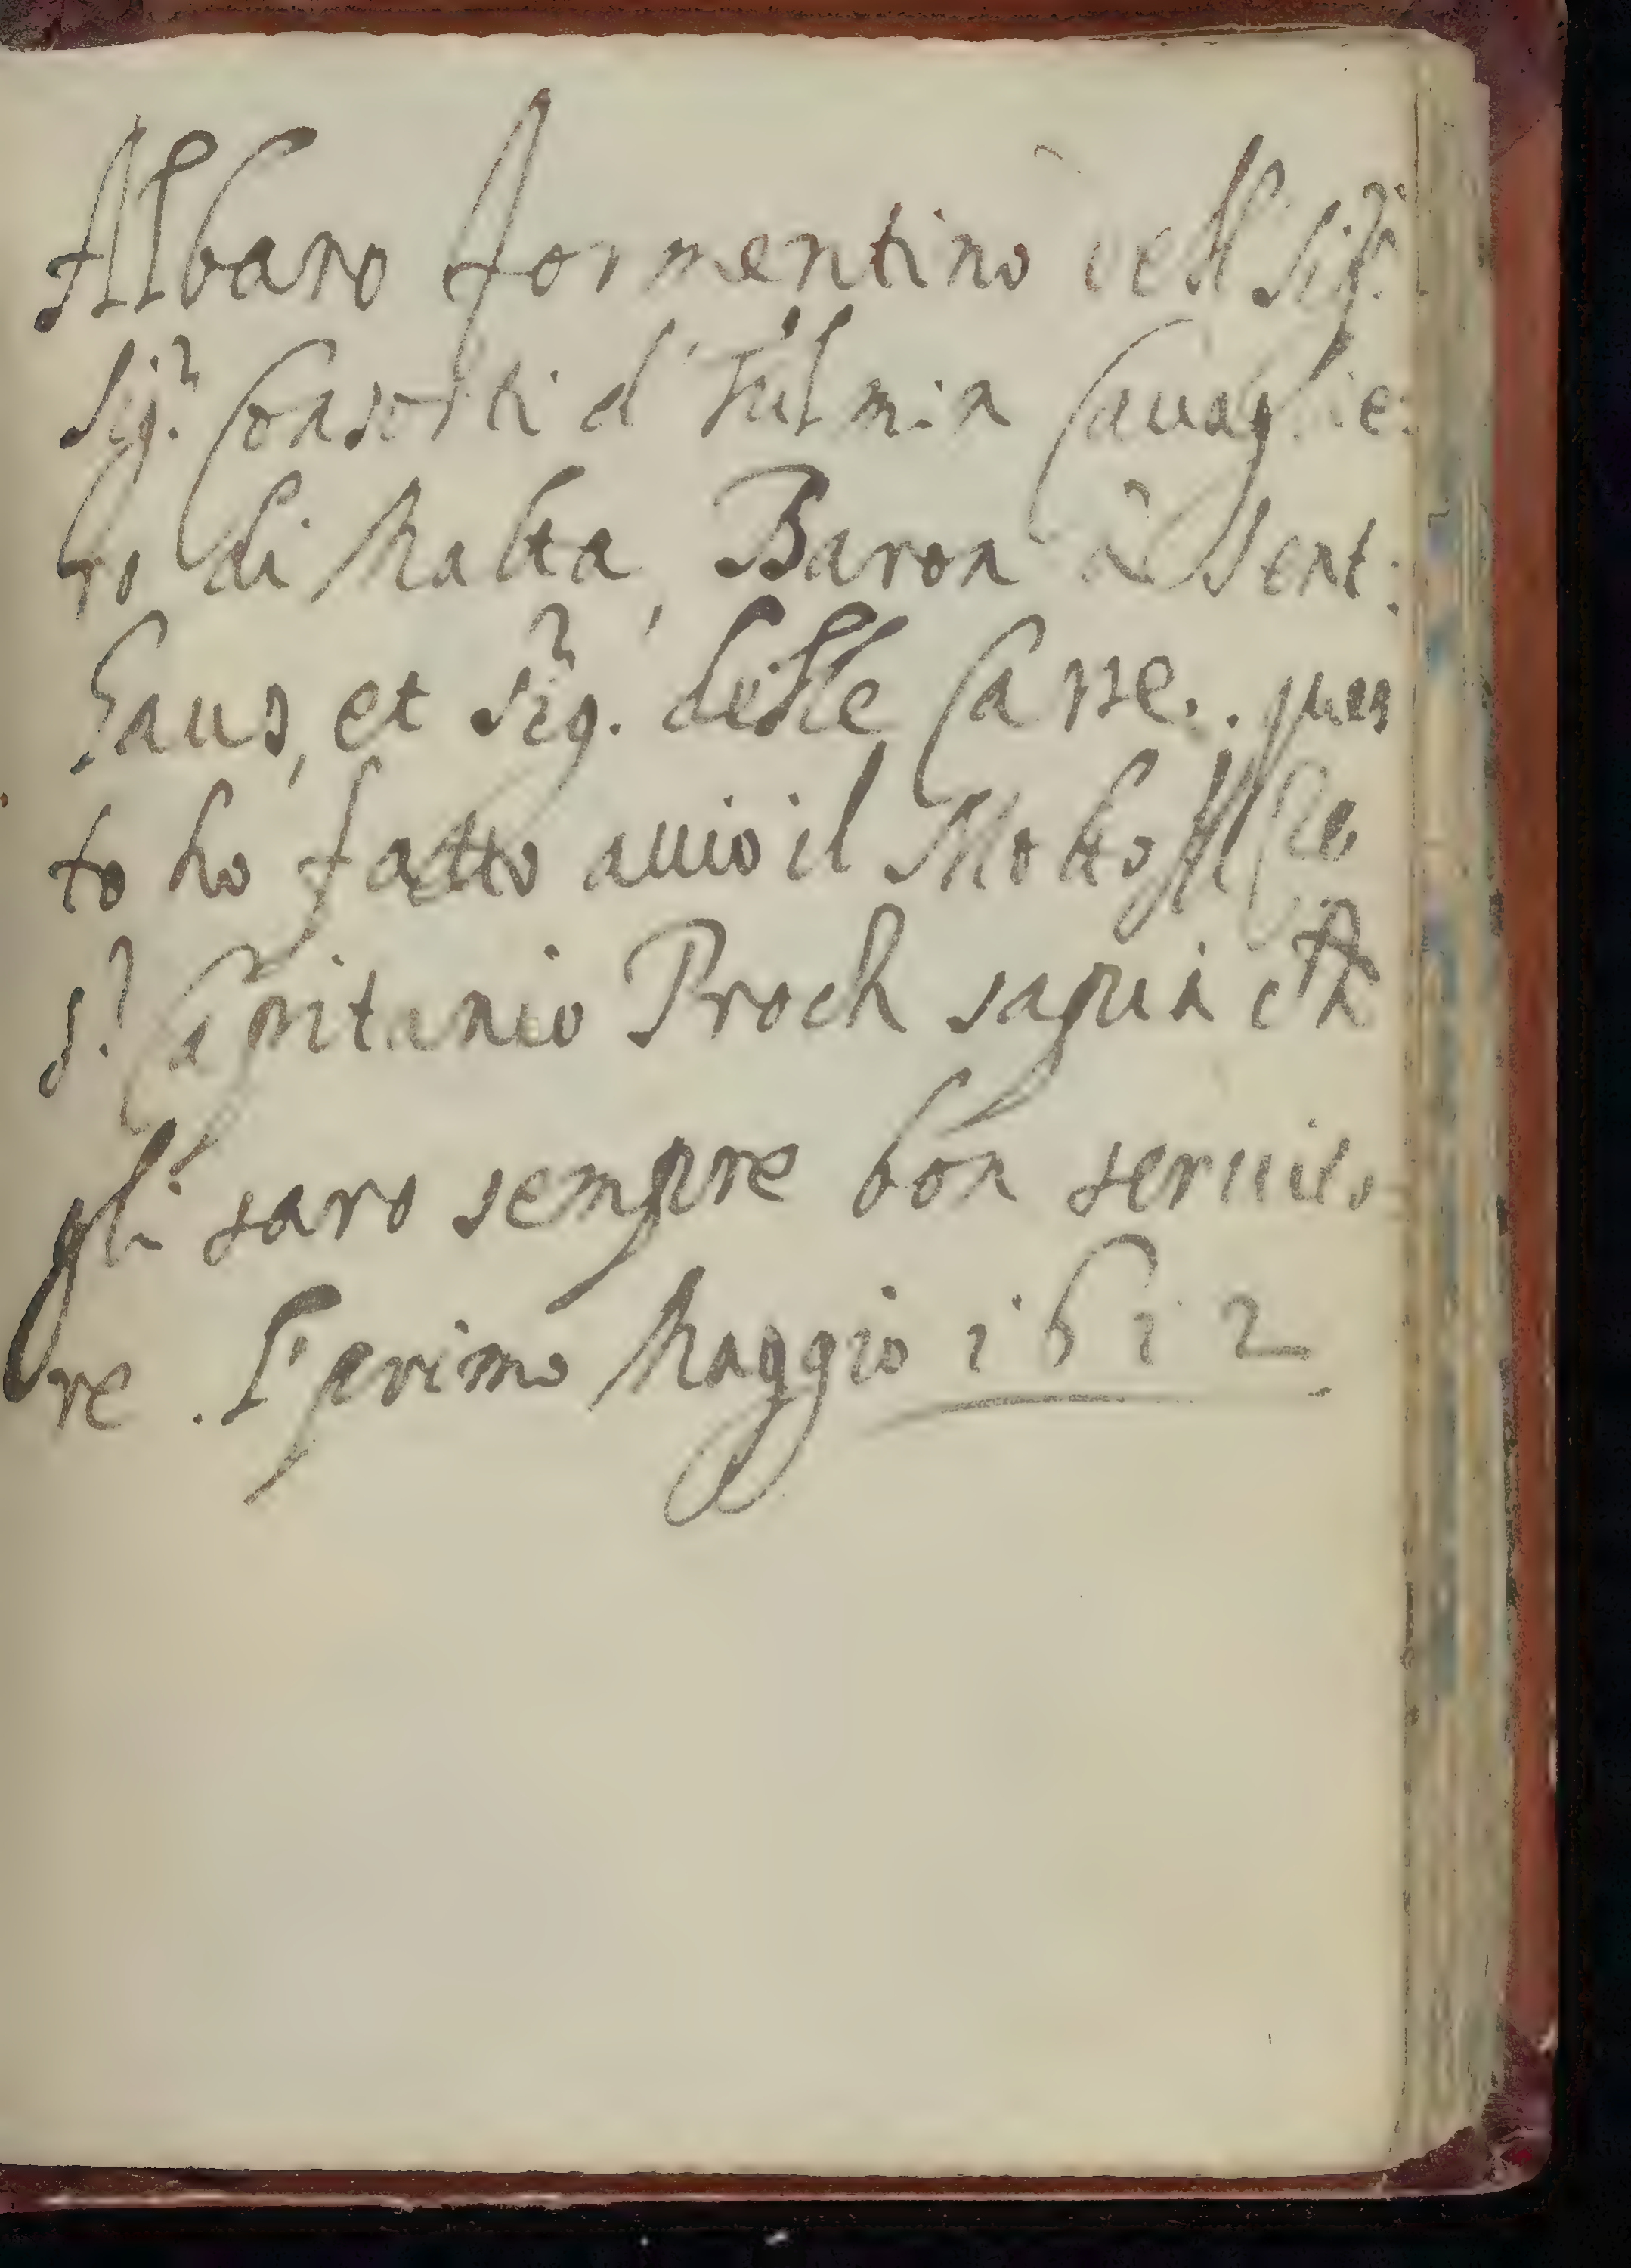 Albaro formentino dell Sig.
Sig. Consorti d' Tulmin Cauaglie:
ro di Malta, Baron Dent:
Gaus, et Sig. delle Casse.. ques
to ho fatto acio il Molto
s. Capitanio Proch sapia ch
gli saro sempre bon seruito
re. I primo Maggio 1612